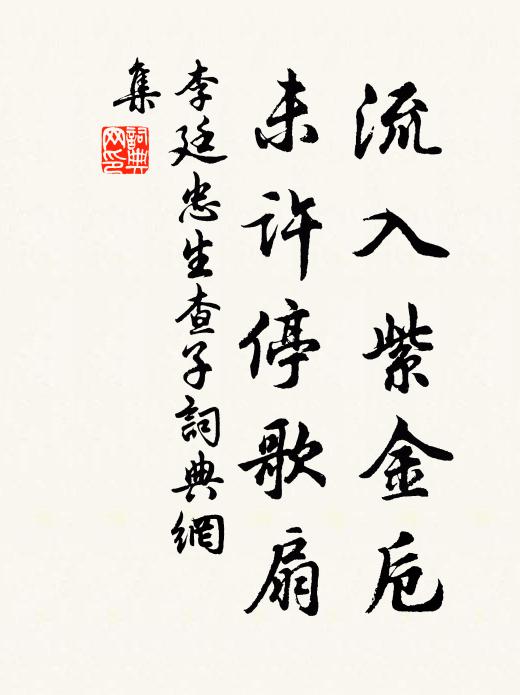 流入紫金卮
未許停歌扇
李廷忠生查子詞典網
集
詞典網印